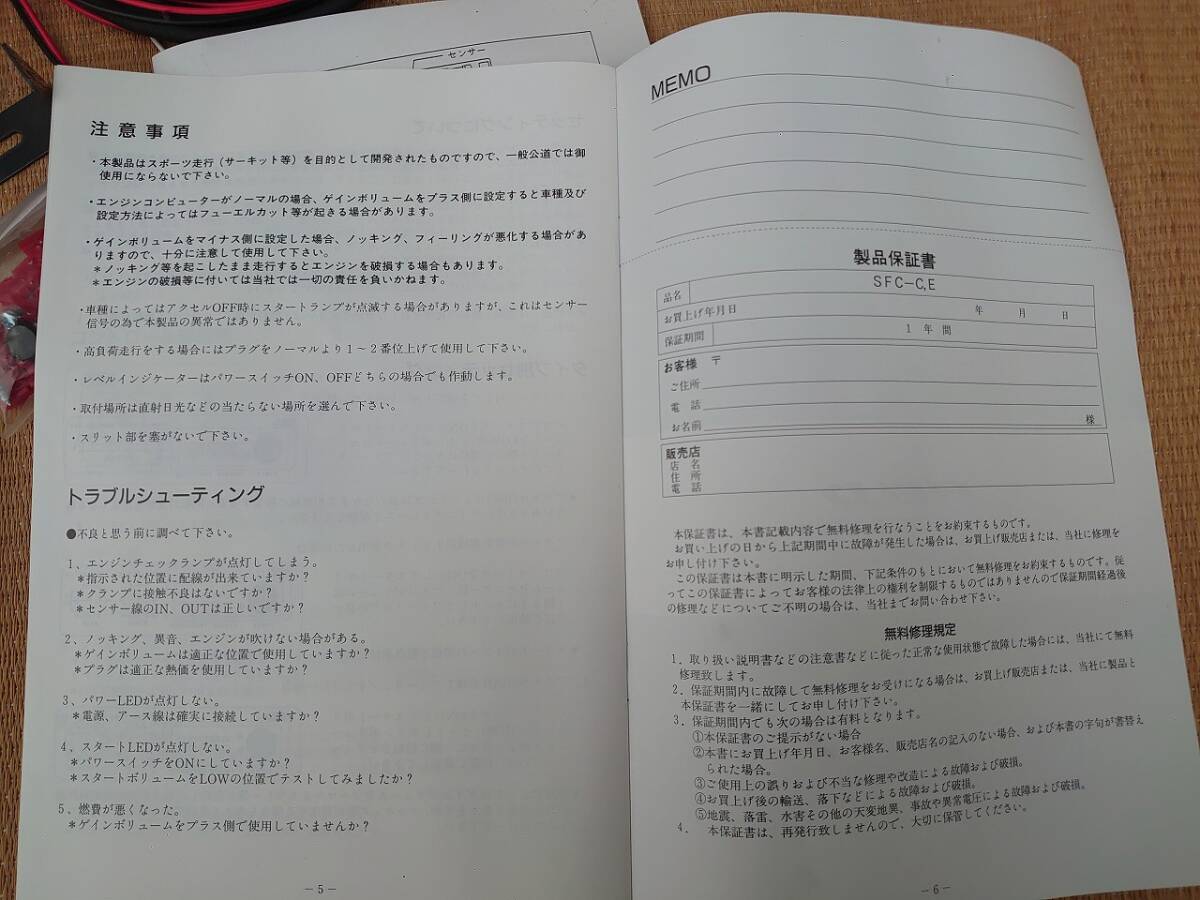 センサー
注意事項
・本製品はスポーツ走行（サーキット等）を目的として開発されたものですので、一般公道では御
使用にならないで下さい。
・エンジンコンピューターがノーマルの場合、ゲインボリュームをプラス側に設定すると車種及び
設定方法によってはフューエルカット等が起きる場合があります。
・ゲインボリュームをマイナス側に設定した場合、ノッキング、フィーリングが悪化する場合があ
りますので、十分に注意して使用して下さい。
＊ノッキング等を起こしたまま走行するとエンジンを破損する場合もあります。
＊エンジンの破損等に付いては当社では一切の責任を負いかねます。
・車種によってはアクセルOFF時にスタートランプが点滅する場合がありますが、これはセンサー
信号の為で本製品の異常ではありません。
・高負荷走行をする場合にはプラグをノーマルより１～２番位上げて使用して下さい。
・レベルインジケーターはパワースイッチON、OFFどちらの場合でも作動します。
・取付場所は直射日光などの当たらない場所を選んで下さい。
・スリット部を塞がないで下さい。
トラブルシューティング
●不良と思う前に調べて下さい。
1、エンジンチェックランプが点灯してしまう。
＊指示された位置に配線が出来ていますか？
＊クランプに接触不良はないですか？
＊センサー線のIN、OUTは正しいですか？
2、ノッキング、異音、エンジンが吹けない場合がある。
＊ゲインボリュームは適正な位置で使用していますか？
＊プラグは適正な熱価を使用していますか？
3、パワーLEDが点灯しない。
＊電源、アース線は確実に接続していますか？
4、スタートLEDが点灯しない。
＊パワースイッチをONにしていますか？
＊スタートボリュームをLOWの位置でテストしてみましたか？
5、燃費が悪くなった。
＊ゲインボリュームをプラス側で使用していませんか？
－5－
MEMO
製品保証書
品名 SFC－C,E
お買上げ年月日 年 月 日
保証期間 1年間
お客様 〒
ご住所
電話
お名前 様
販売店
店名
住所
電話
本保証書は、本書記載内容で無料修理を行なうことをお約束するものです。
お買い上げの日から上記期間中に故障が発生した場合は、お買上げ販売店または、当社に修理を
お申し付け下さい。
この保証書は本書に明示した期間、下記条件のもとにおいて無料修理をお約束するものです。従
ってこの保証書によってお客様の法律上の権利を制限するものではありませんので保証期間経過後
の修理などについてご不明の場合は、当社までお問い合わせ下さい。
無料修理規定
1．取り扱い説明書などの注意書などに従った正常な使用状態で故障した場合には、当社にて無料
修理致します。
2．保証期間内に故障して無料修理をお受けになる場合は、お買上げ販売店または、当社に製品と
本保証書を一緒にしてお申し付け下さい。
3．保証期間内でも次の場合は有料となります。
①本保証書のご提示がない場合
②本書にお買上げ年月日、お客様名、販売店名の記入のない場合、および本書の字句が書替え
られた場合。
③ご使用上の誤りおよび不当な修理や改造による故障および破損。
④お買上げ後の輸送、落下などによる故障および破損。
⑤地震、落雷、水害その他の天変地異、事故や異常電圧による故障および破損。
4． 本保証書は、再発行致しませんので、大切に保管してください。
－6－